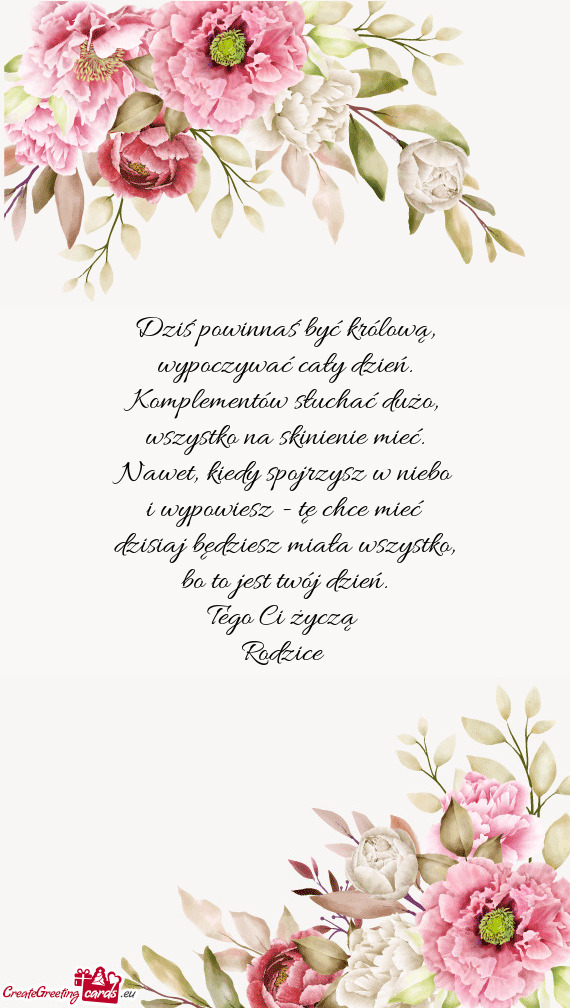 Dziś powinnaś być królową,
wypoczywać cały dzień.
Komplementów słuchać dużo,
wszystko na skinienie mieć.
Nawet, kiedy spojrzysz w niebo
i wypowiesz - tę chce mieć
dzisiaj będziesz miała wszystko,
bo to jest twój dzień.
Tego Ci życzą
Rodzice
CreateGreeting cards .eu